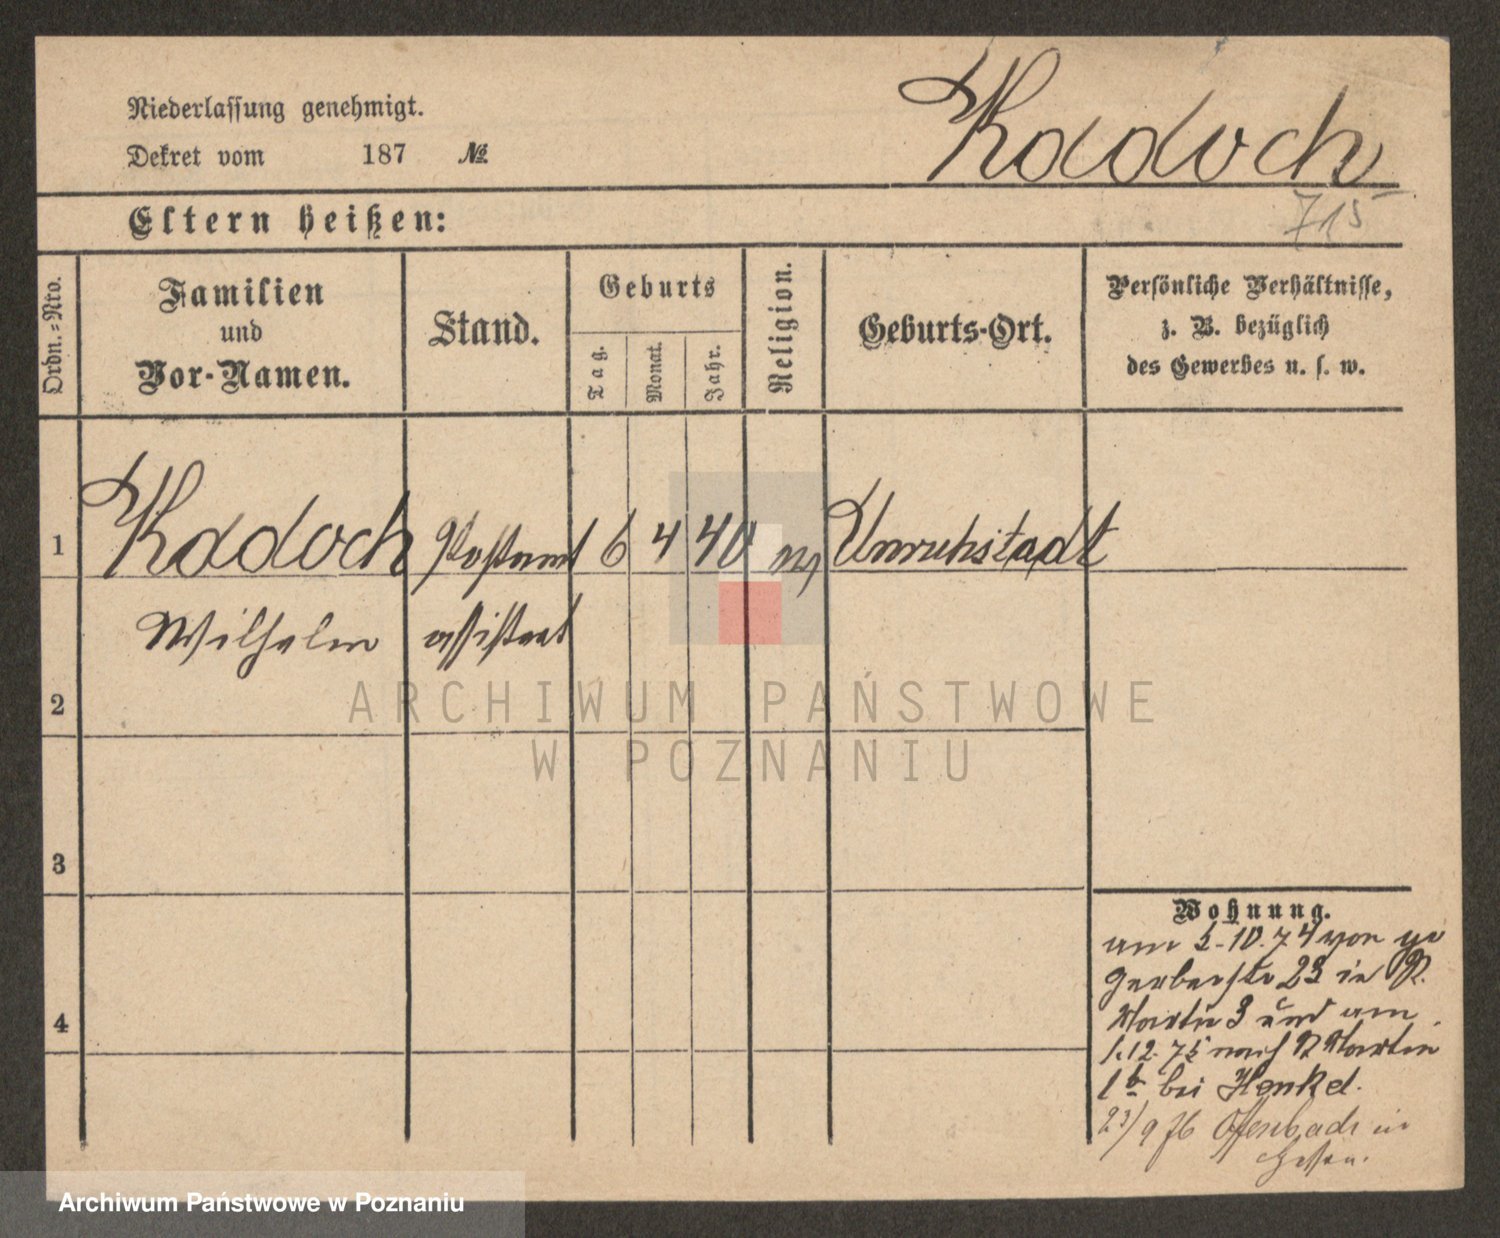 Kadoch
Niederlassung genehmigt.
Dekret vom 187 №
715
Eltern heißen:
Ordn.=Nro.
Familien
und
Vor-Namen.
Stand.
Geburts
Tag.
Monat.
Jahr.
Religion.
Geburts-Ort.
Persönliche Verhältnisse,
z. B. bezüglich
des Gewerbes u. s. w.
1 Kadoch Postamt 6 4 40 Unruhstadt
Wilhelm assistent
2
3
4
Wohnung.
am 5.10.74 von
Gerberstr 23 in St.
Martin 3 und am
1.12.75 nach St Martin
1 b bei Henkel.
23/9 76 Offenbach in
Hessen.
ARCHIWUM PAŃSTWOWE
W POZNANIU
Archiwum Państwowe w Poznaniu